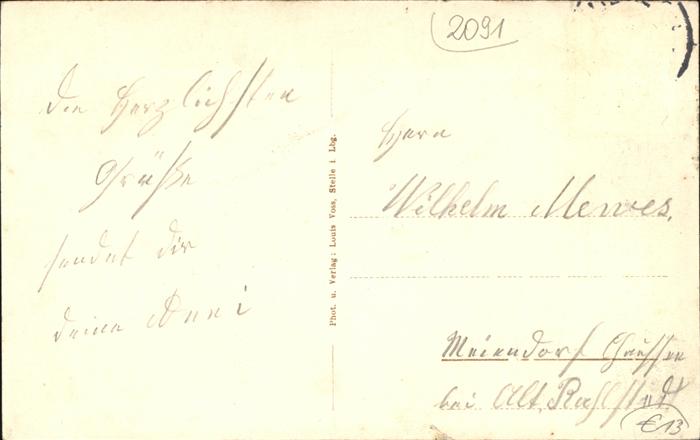 2091
Die Herzlichsten
Grüße
sendet dir
deine Anni
Phot. u. Verlag: Louis Voss, Stelle i. Lbg.
Herrn
Wilhelm Mewes.
Meiendorf Chaussee
bei Alt Rahlstedt
€13